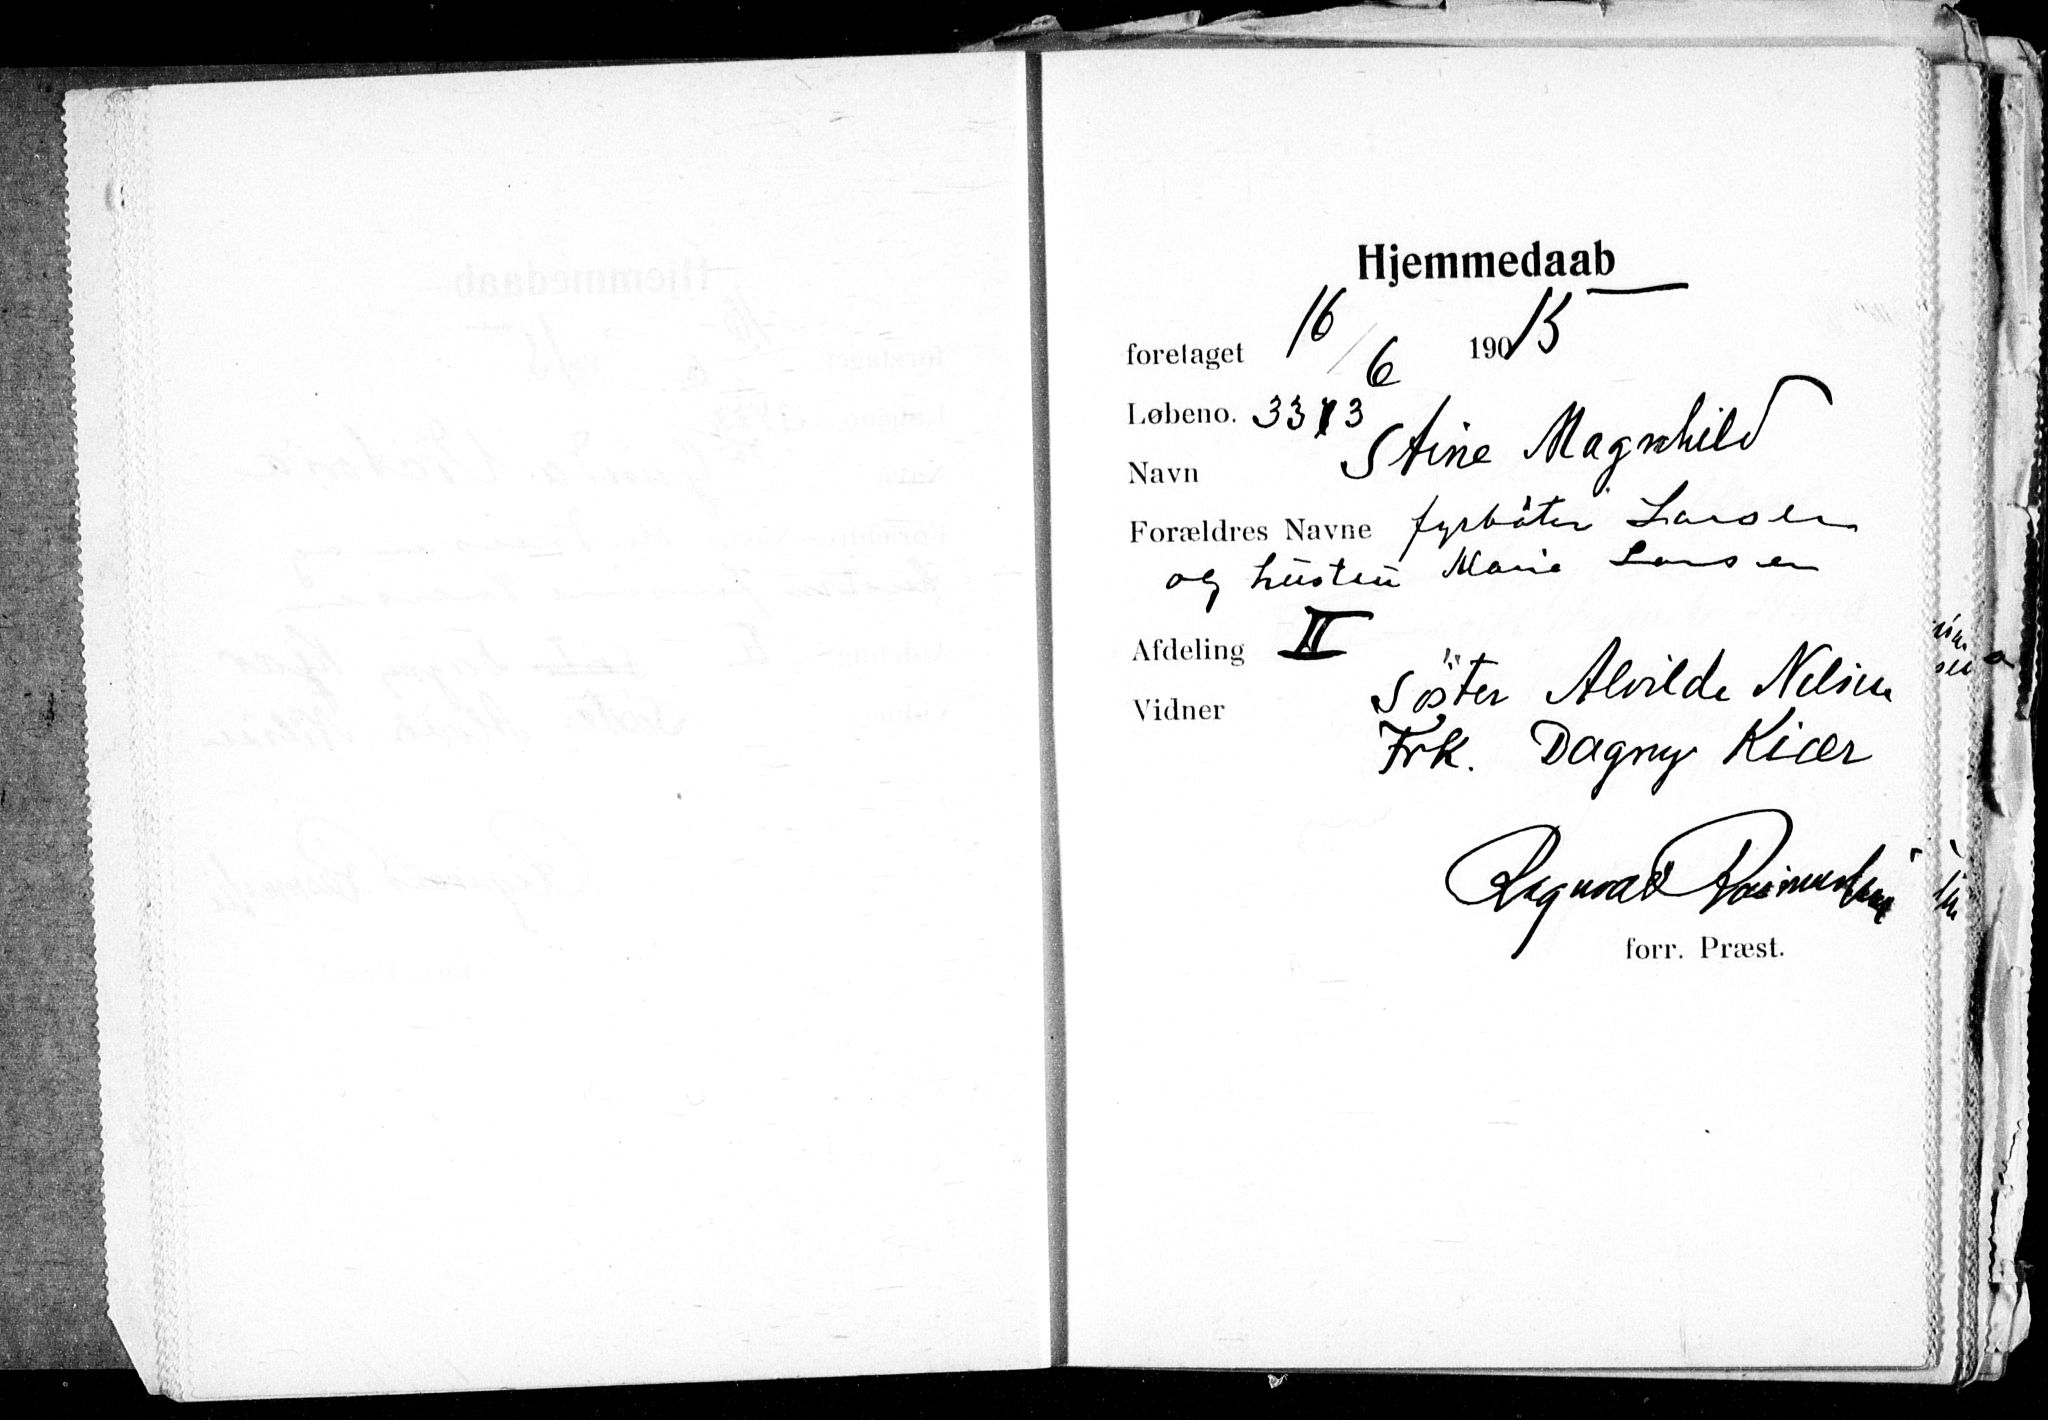 Hjemmedaab
foretaget 16/6 1915
Løbeno. 3373
Navn Stine Magnhild
Forældres Navne fyrbøter Larsen
og hustru Marie Larsen
Afdeling II
Vidner Söster Alvilde Nelsen
Frk. Dagny Kiær
Ragnvald Rasmussen
forr. Præst.